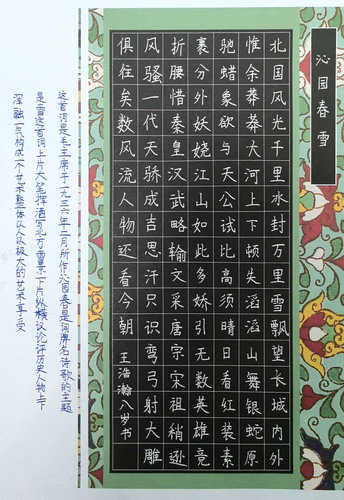 沁园春 雪
北国风光千里冰封万里雪飘望长城内外
惟余莽莽大河上下顿失滔滔山舞银蛇原
驰蜡象欲与天公试比高须晴日看红装素
裹分外妖娆江山如此多娇引无数英雄竞
折腰惜秦皇汉武略输文采唐宗宋祖稍逊
风骚一代天骄成吉思汗只识弯弓射大雕
俱往矣数风流人物还看今朝 王浩瀚八岁书
这首词是毛主席于一九三六年二月所作沁园春是词牌名诗歌的主题
是雪这首词上片大笔挥洒写北方雪景下片纵横议论评历史人物上下
浑融一气构成一个艺术整体以人以极大的艺术享受